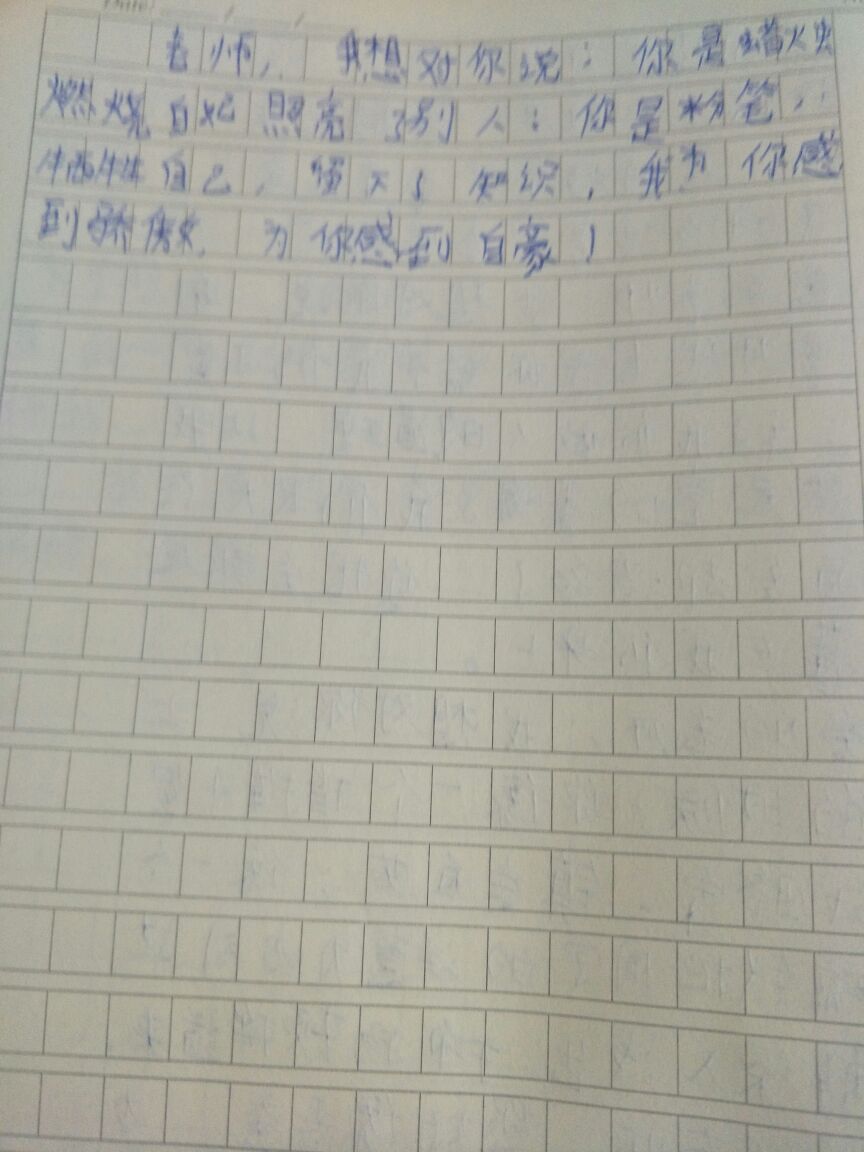 老师,我想对你说:你是蜡烛
燃烧自己照亮了别人;你是粉笔,
牺牲自己,留下了知识,我为你感
到骄傲,为你感到自豪!